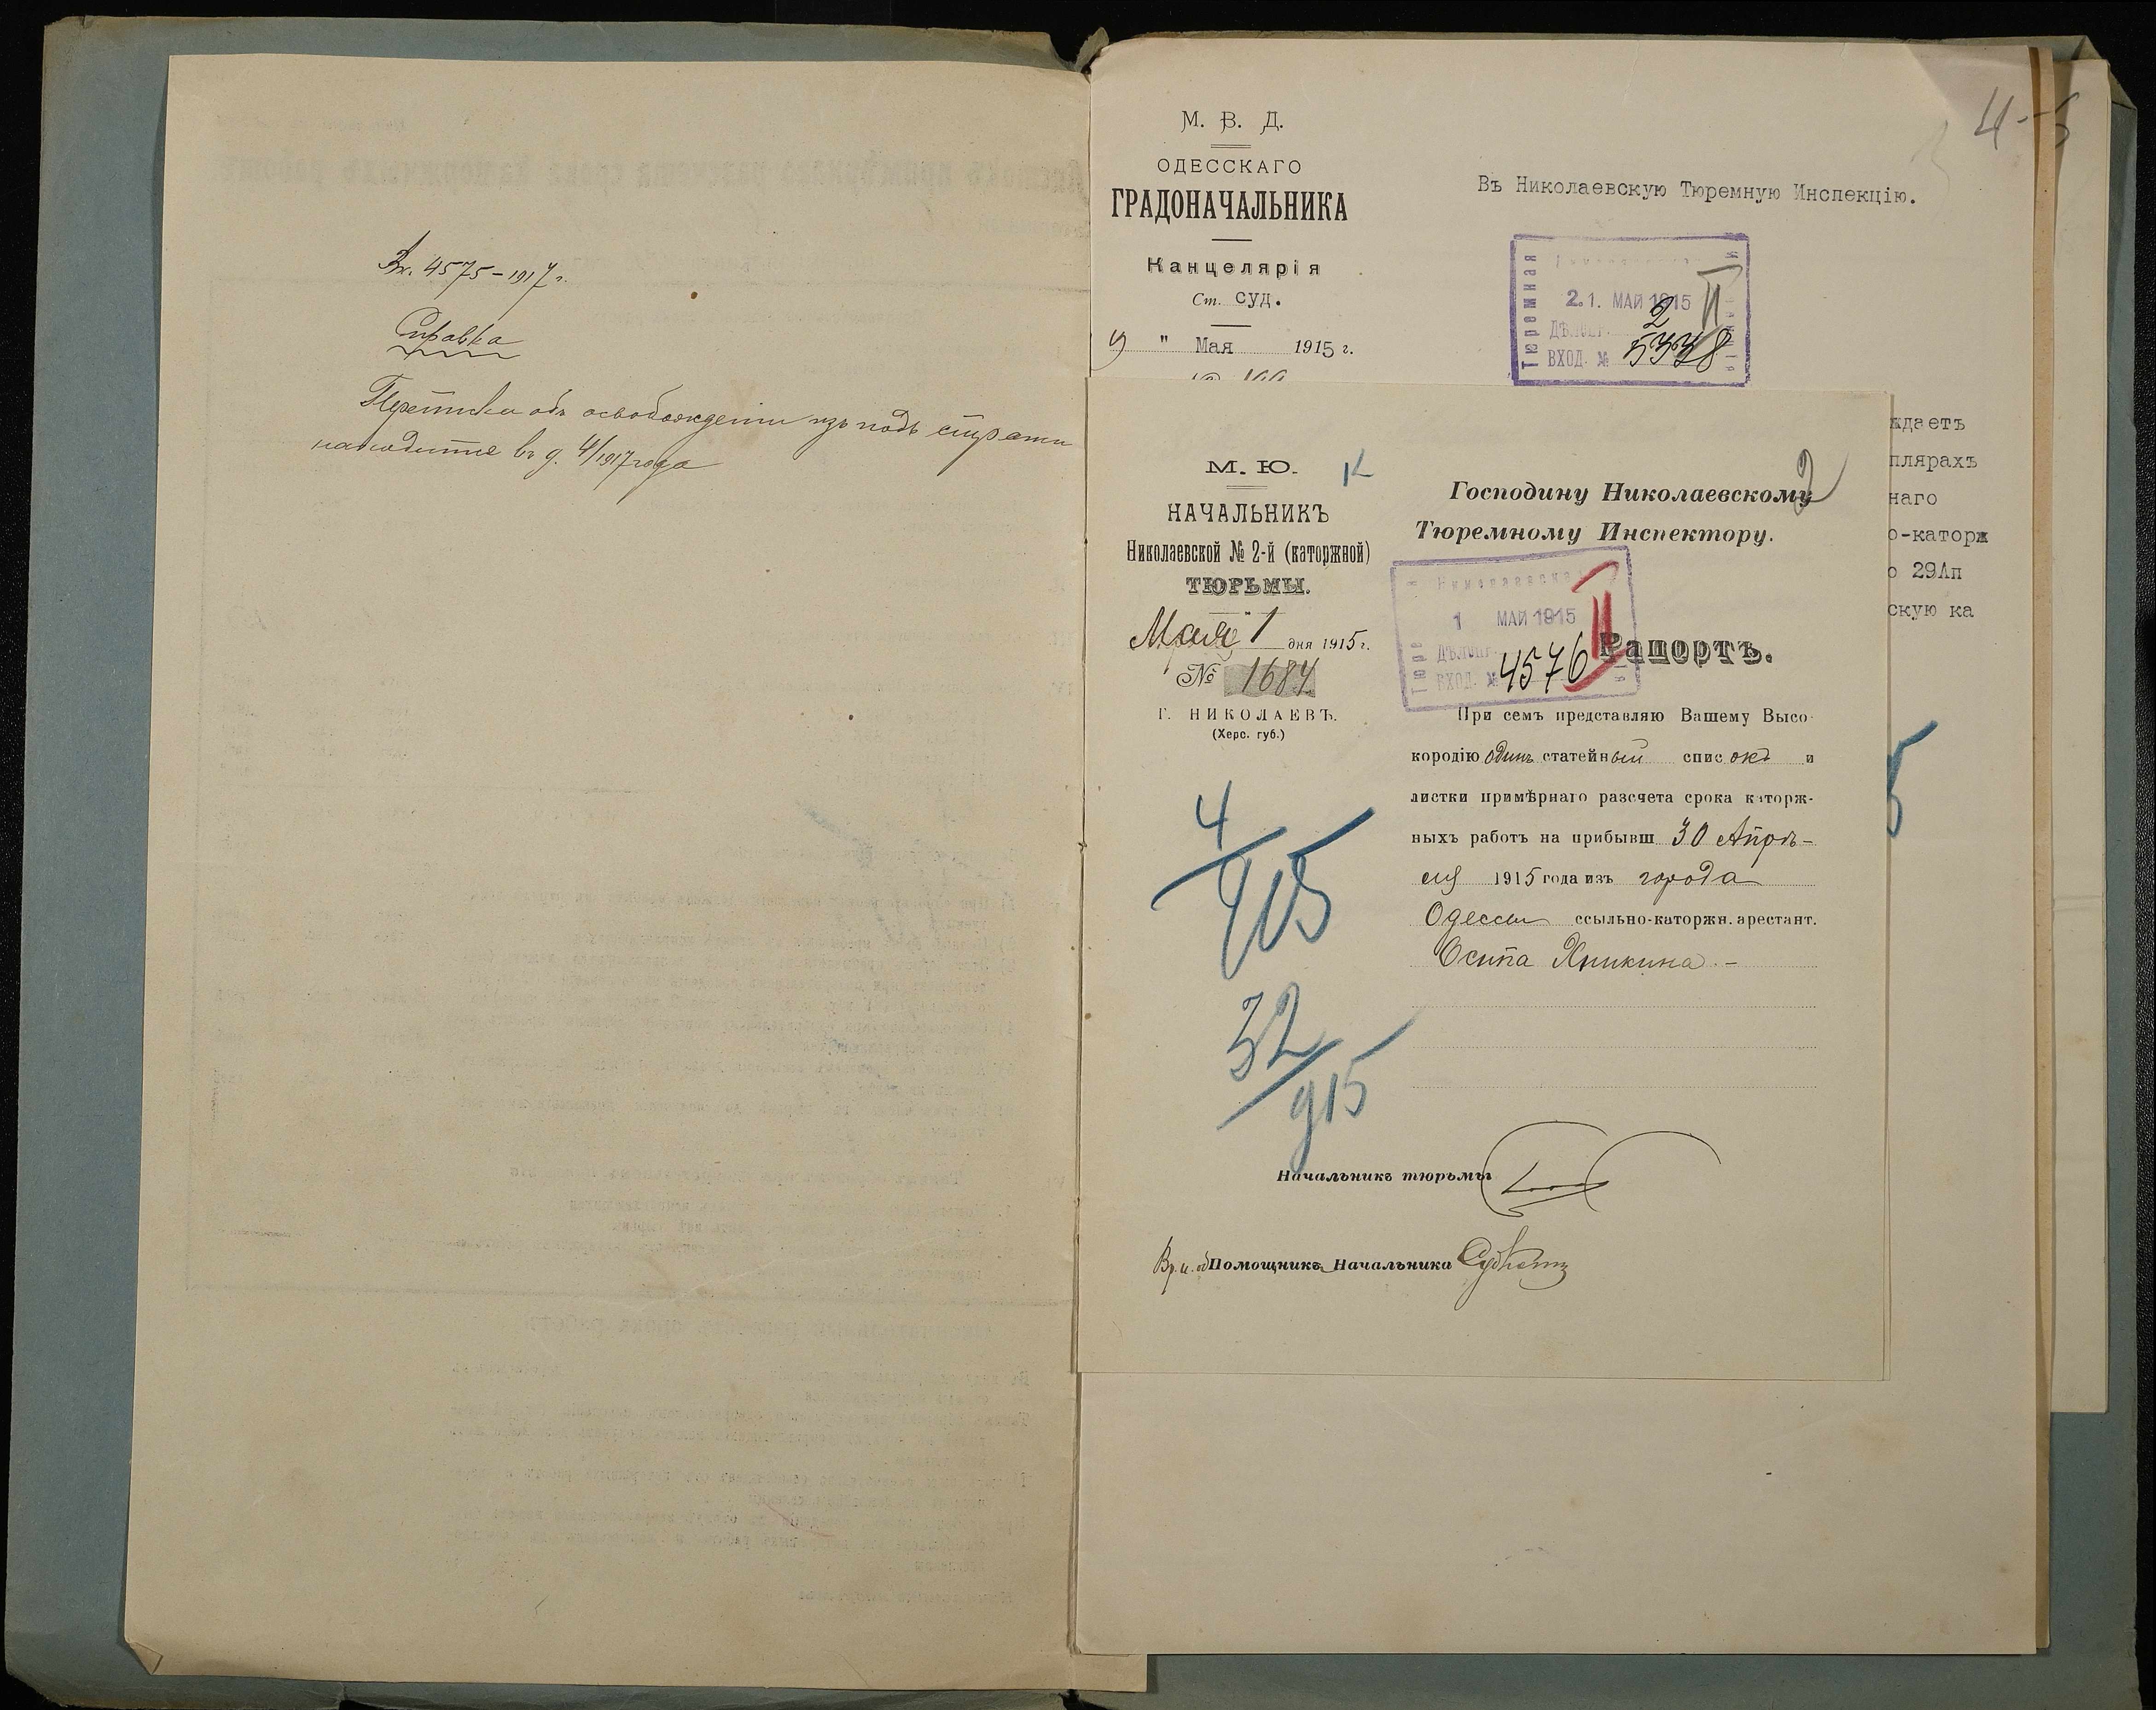 Вх. 4575-1917 г.
Справка
Переписка объ освобожденіи изъ подъ стражи
находится въ д. 4/1917 года
М. В. Д.
ОДЕССКАГО
ГРАДОНАЧАЛЬНИКА
Канцелярія
Ст. суд.
" Мая 1915 г.
Въ Николаевскую Тюремную Инспекцію.
4-5
Тюремная
21. МАЙ 1915 II
ДѢЛОПР. 2
ВХОД. № 5338
ждаетъ
плярахъ
наго
о-каторж
о 29Ап
скую ка
М. Ю.
НАЧАЛЬНИКЪ
Николаевской № 2-й (каторжной)
ТЮРЬМЫ.
Мая 1 дня 1915 г.
№ 1684
Г. НИКОЛАЕВЪ.
(Херс. губ.)
4/915
32/915
2
Господину Николаевскому
Тюремному Инспектору.
Николаевская
1 МАЙ 1915 II
ДѢЛОПР.
ВХОД. № 4576
Рапортъ.
При семъ представляю Вашему Высо-
кородію одинъ статейный списокъ и
листки примѣрнаго разсчета срока каторж-
ныхъ работъ на прибывш 30 Апрѣ-
ля 1915 года изъ города
Одессы ссыльно-каторжн. арестант.
Осипа Яникина.-
Начальникъ тюрьмы
Вр. и. об Помощникъ Начальника